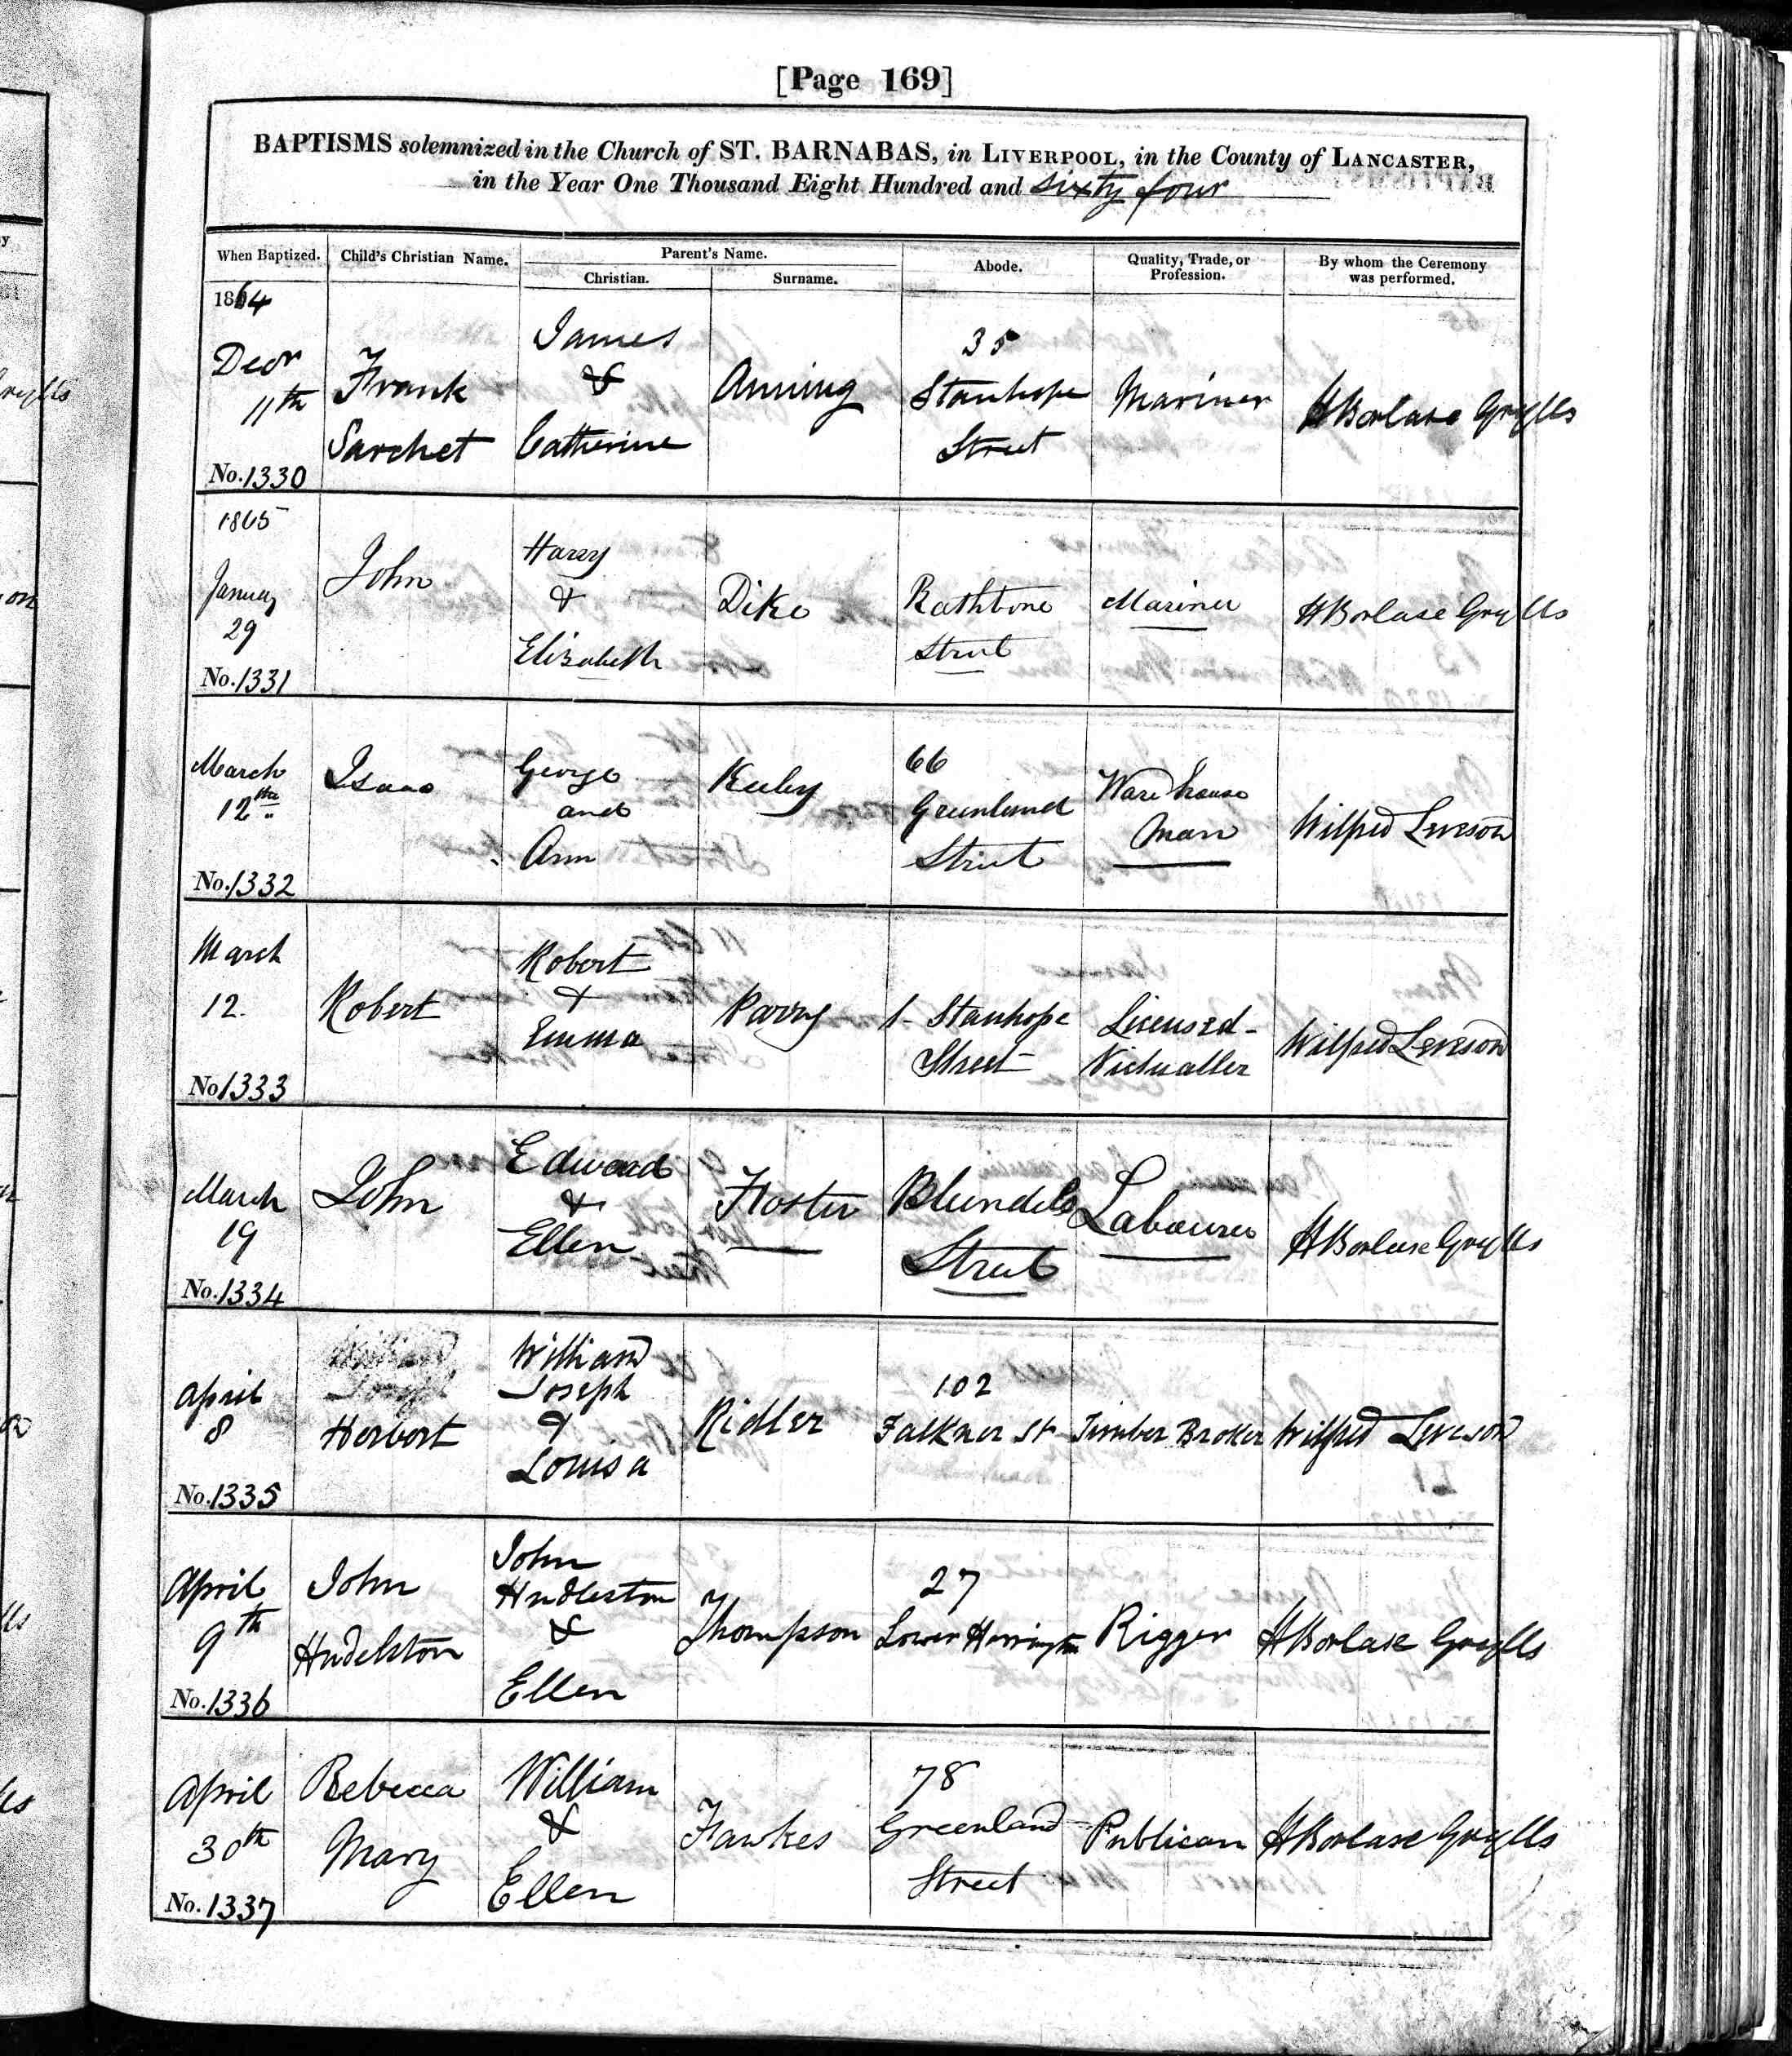 [Page 169]
BAPTISMS solemnized in the Church of ST. BARNABAS, in LIVERPOOL, in the County of LANCASTER,
in the Year One Thousand Eight Hundred and sixty four
When Baptized. Child's Christian Name. Parent's Name. Abode. Quality, Trade, or Profession. By whom the Ceremony was performed.
Christian. Surname.
1864
Decr 11th
No. 1330
Frank Sarchet
James & Catherine
Anning
35 Stanhope Street
Mariner
H Borlase Grylls
1865
January 29
No. 1331
John
Harry & Elizabeth
Dike
Rathbone Street
Mariner
H Borlase Grylls
March 12th
No. 1332
Isaac
George and Ann
66 Greenland Street
Warehouse Man
Wilfred Leveson
March 12.
No 1333
Robert
Robert & Emma
Parry
1 - Stanhope Street
Licensed - Victualler
Wilfred Leveson
March 19
No. 1334
John
Edward & Ellen
Foster
Blundell Street
Labourer
H Borlase Grylls
April 8
No. 1335
William Joseph
Herbert
William Joseph & Louisa
Ridler
102 Falkner St
Timber Broker
Wilfred Leveson
April 9th
No. 1336
John Hudelston
John Hudleston & Ellen
Thompson
27 Lower Harrington
Rigger
H Borlase Grylls
April 30th
No. 1337
Rebecca Mary
William & Ellen
Fawkes
78 Greenland Street
Publican
H Borlase Grylls